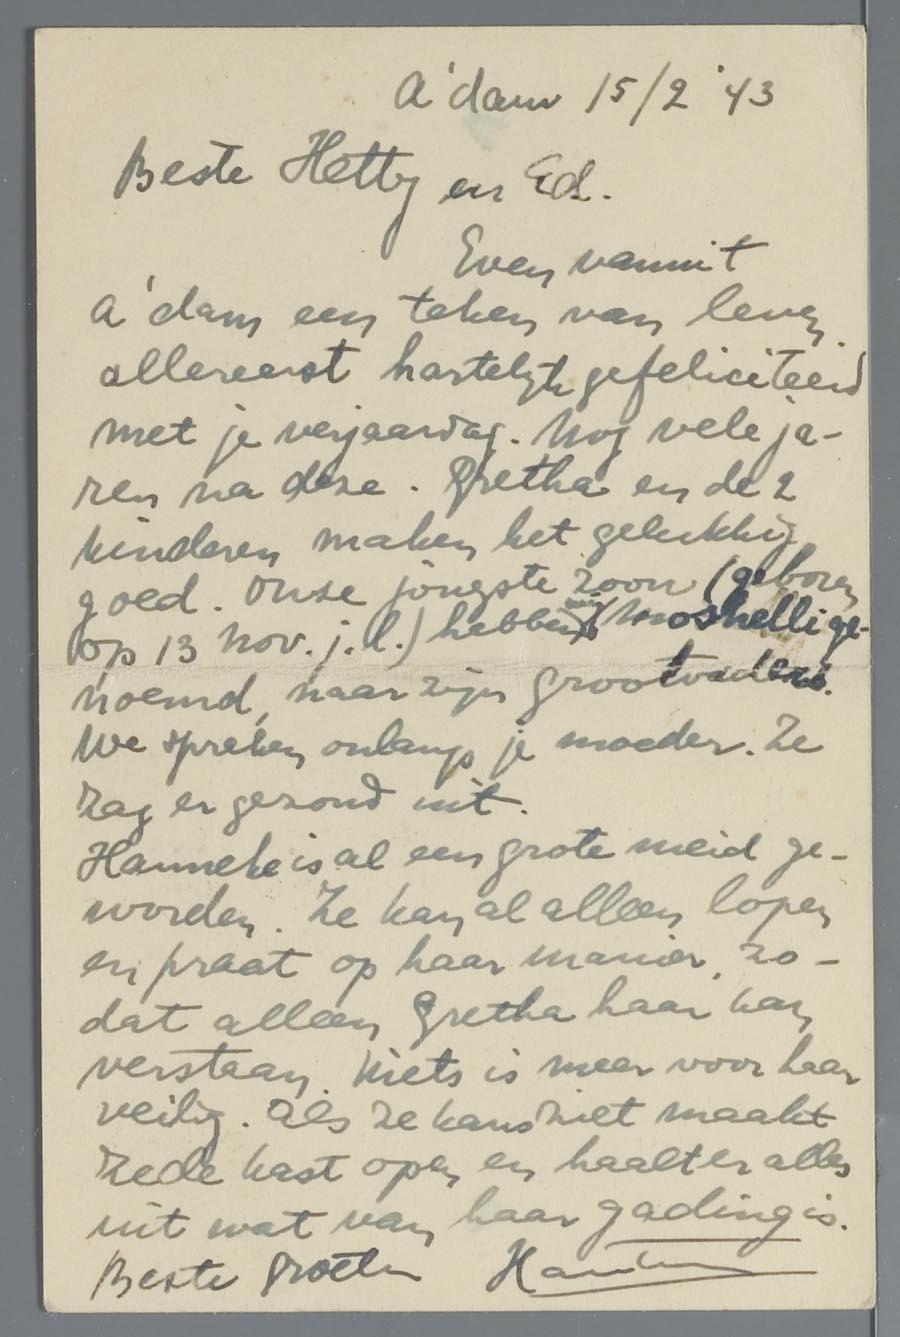 A'dam 15/2 '43
Beste Hetty en Ed.
Even vanuit
A'dam een teken van leven
allereerst hartelijk gefeliciteerd
met je verjaardag. Nog vele ja-
ren na deze. Gretha en de 2
kinderen maken het gelukkig
goed. Onze jongste zoon (geboren
op 13 nov. j.l.) hebben wij ge-
noemd, naar zijn grootvaders.
We spreken onlangs je moeder. Ze
zag er gezond uit.
Hanneke is al een grote meid ge-
worden. Ze kan al alleen lopen
en praat op haar manier, zo-
dat alleen Gretha haar kan
verstaan. Niets is meer voor haar
veilig. Als ze kans ziet maakt
ze de kast open en haalt er alles
uit wat van haar gading is.
Beste groeten